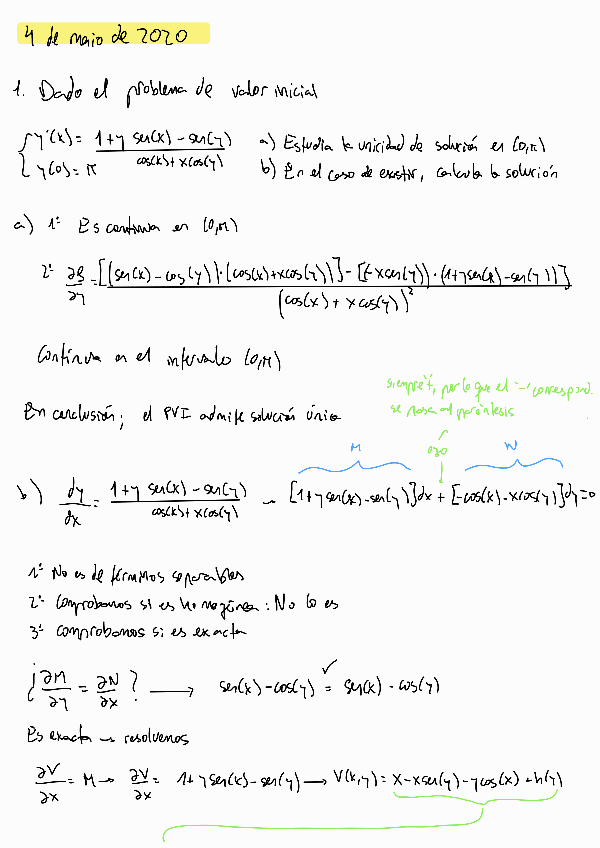 4 de maio de 2020
1. Dado el problema de valor inicial
{ y'(x) = (1+y sen(x) - sen(y)) / (cos(x) + x cos(y)) a) Estudia la unicidad de solución en (0,π)
{ y(0) = π b) En el caso de existir, calcula la solución
a) 1º Es continua en (0,π)
2º ∂f/∂y = [(sen(x) - cos(y))·(cos(x)+xcos(y))] - [(-xsen(y))·(1+ysen(x)-sen(y))] / (cos(x) + x cos(y))²
Continua en el intervalo (0,π)
siempre +, por lo que el '-' correspond.
se pasa al paréntesis
En conclusión; el PVI admite solución única
M ojo N
b) dy/dx = (1+y sen(x) - sen(y)) / (cos(x) + x cos(y)) → [1+y sen(x) - sen(y)]dx + [-cos(x) - xcos(y)]dy=0
1º No es de términos separables
2º Comprobamos si es homogénea: No lo es
3º comprobamos si es exacta
¿ ∂M/∂y = ∂N/∂x ? → sen(x) - cos(y) =✓ sen(x) - cos(y)
Es exacta → resolvemos
∂V/∂x = M → ∂V/∂x = 1+y sen(x) - sen(y) → V(x,y) = x - xsen(y) - ycos(x) + h(y)